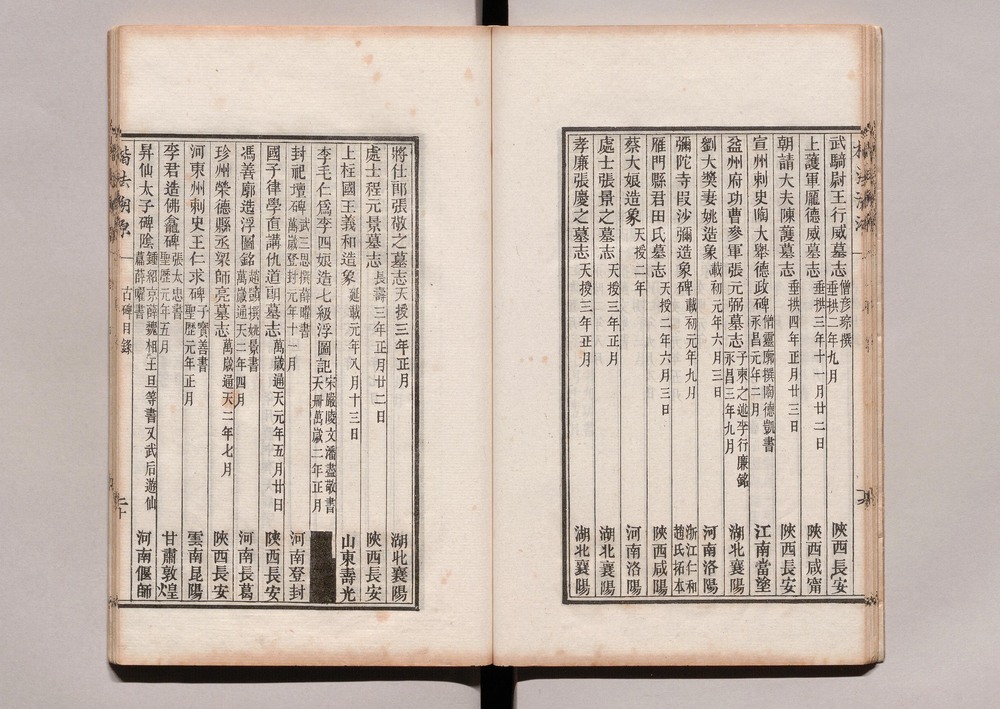 武騎尉王行威墓志 僧彦琮撰 垂拱二年九月 陝西長安
上護軍龐德威墓志 垂拱三年十一月廿二日 陝西咸甯
朝請大夫陳護墓志 垂拱四年正月廿三日 陝西長安
宣州刺史陶大舉德政碑 僧靈廓撰陶德凱書 永昌元年二月 江南當塗
益州府功曹參軍張元弼墓志 子柬之述李行廉銘 永昌三年九月 湖北襄陽
劉大奬妻姚造象 載初元年六月三日 河南洛陽
彌陀寺叚沙彌造象碑 載初元年九月 浙江仁和 趙氏拓本
雁門縣君田氏墓志 天授二年六月三日 陝西咸陽
蔡大娘造象 天授二年 河南洛陽
處士張景之墓志 天授三年正月 湖北襄陽
孝廉張慶之墓志 天授三年正月 湖北襄陽
將仕郎張敬之墓志 天授三年正月 湖北襄陽
處士程元景墓志 長壽三年正月廿二日 陝西長安
上柱國王義和造象 延載元年八月十三日 山東壽光
李毛仁爲李四娘造七級浮圖記 宋嚴陵文潘盡敬書 天冊萬歲二年正月
封祀壇碑 武三思撰薛曜書 萬歲登封元年十一月 河南登封
國子律學直講仇道朗墓志 萬歲通天元年五月廿日 陝西長安
馮善廓造浮圖銘 趙頭撰姚景書 萬歲通天二年四月 河南長葛
珍州榮德縣丞梁師亮墓志 萬歲通天二年七月 陝西長安
河東州刺史王仁求碑 子寶善書 聖歷元年正月 雲南昆陽
李君造佛龕碑 張大忠書 聖歷元年五月 甘肅敦煌
昇仙太子碑陰 鍾紹京薛魏相王旦等書又武后遊仙 薛曜書 河南偃師
楷法溯源 古碑目錄 二十